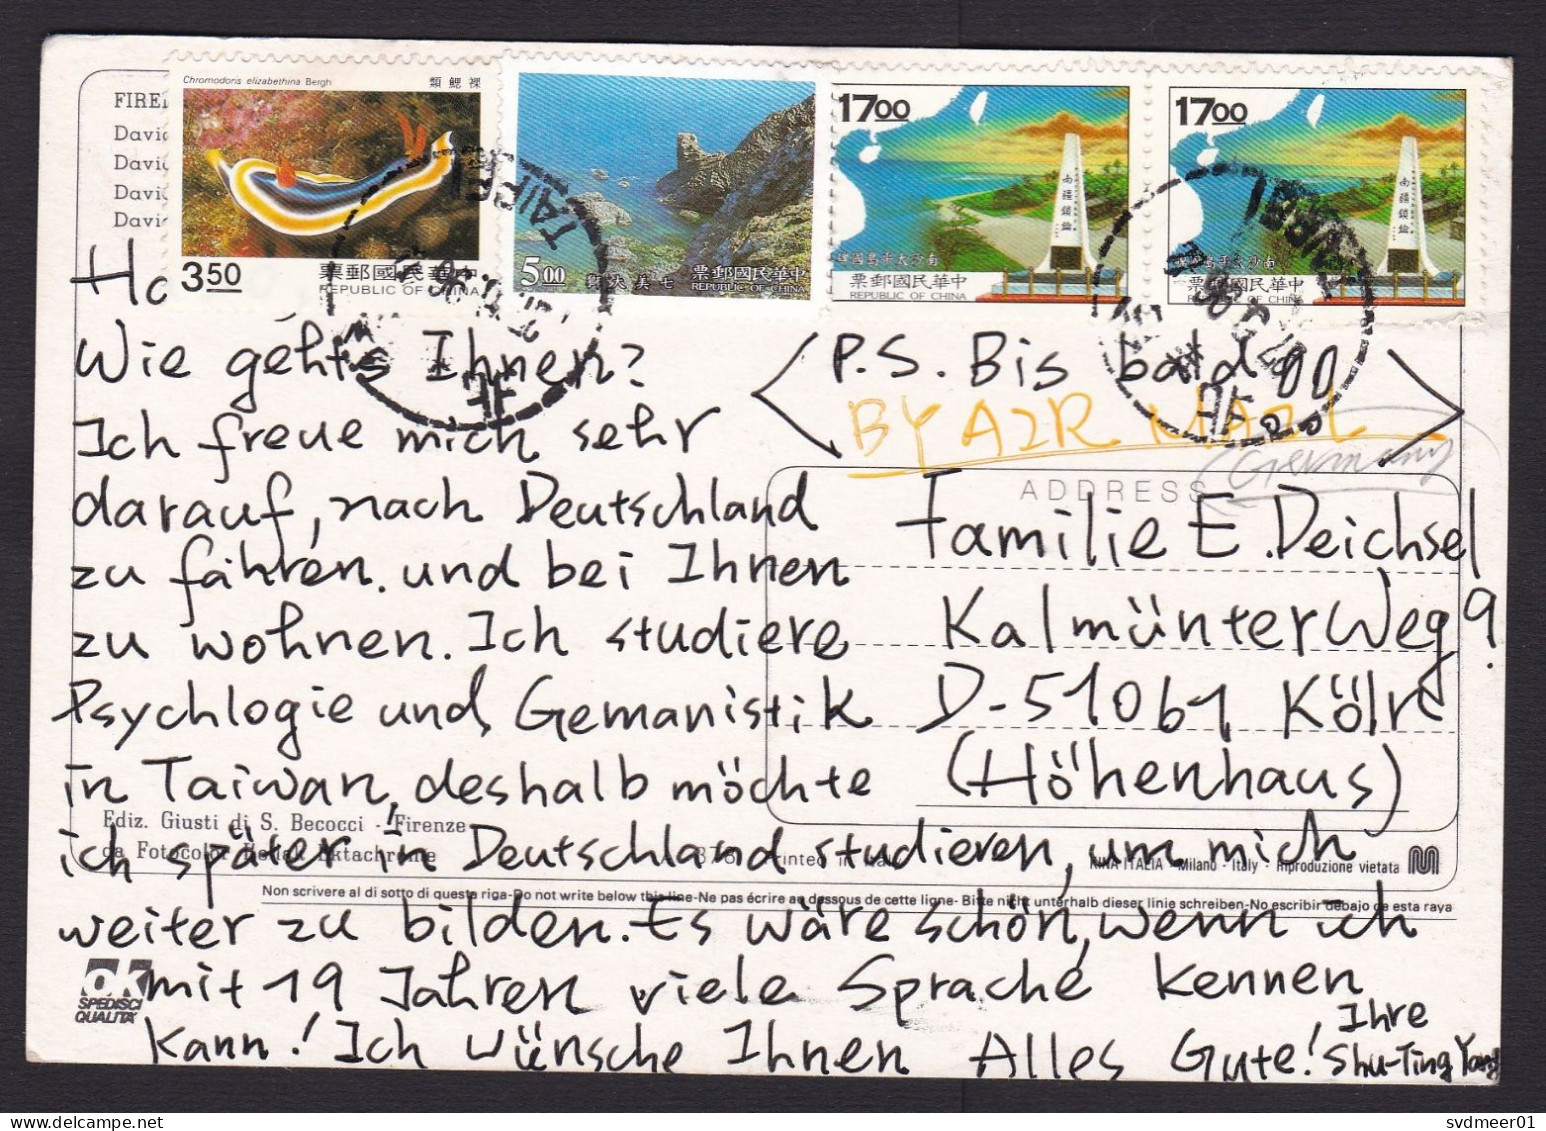 Chromodoris elizabethina Bergh
類鰓裸
350
票郵國民華中
REPUBLIC OF CHINA
5.00
票郵國民華中
美七
1700
南疆鎖鑰
票郵國民華中
REPUBLIC OF CHINA
1700
南疆鎖鑰
票郵國民華中
REPUBLIC OF CHINA
TAIPEI
TAIPEI
FIRE
David
David
David
David
Ha
Wie gehts Ihnen?
Ich freue mich sehr
darauf, nach Deutschland
zu fahren. und bei Ihnen
zu wohnen. Ich studiere
Psychlogie und Gemanistik
in Taiwan, deshalb möchte
ich später in Deutschland studieren, um mich
weiter zu bilden. Es wäre schön, wenn ich
mit 19 Jahren viele Sprache kennen
kann! Ich wünsche Ihnen Alles Gute! Ihre
Shu-Ting Yang
P.S. Bis bald
BY AIR MAIL
Germany
ADDRESS
Familie E. Deichsel
Kalmünter Weg 9.
D-51061 Köln
(Höhenhaus)
Ediz. Giusti di S. Becocci - Firenze
da Fotocolor Kodak Ektachrome
Printed in Italy
RINA ITALIA - Milano - Italy - Riproduzione vietata
Non scrivere al di sotto di questa riga-Do not write below this line-Ne pas écrire au dessous de cette ligne- Bitte nicht unterhalb dieser linie schreiben-No escribir debajo de esta raya
ok
SPEDISCI
QUALITA'
svdmeer01